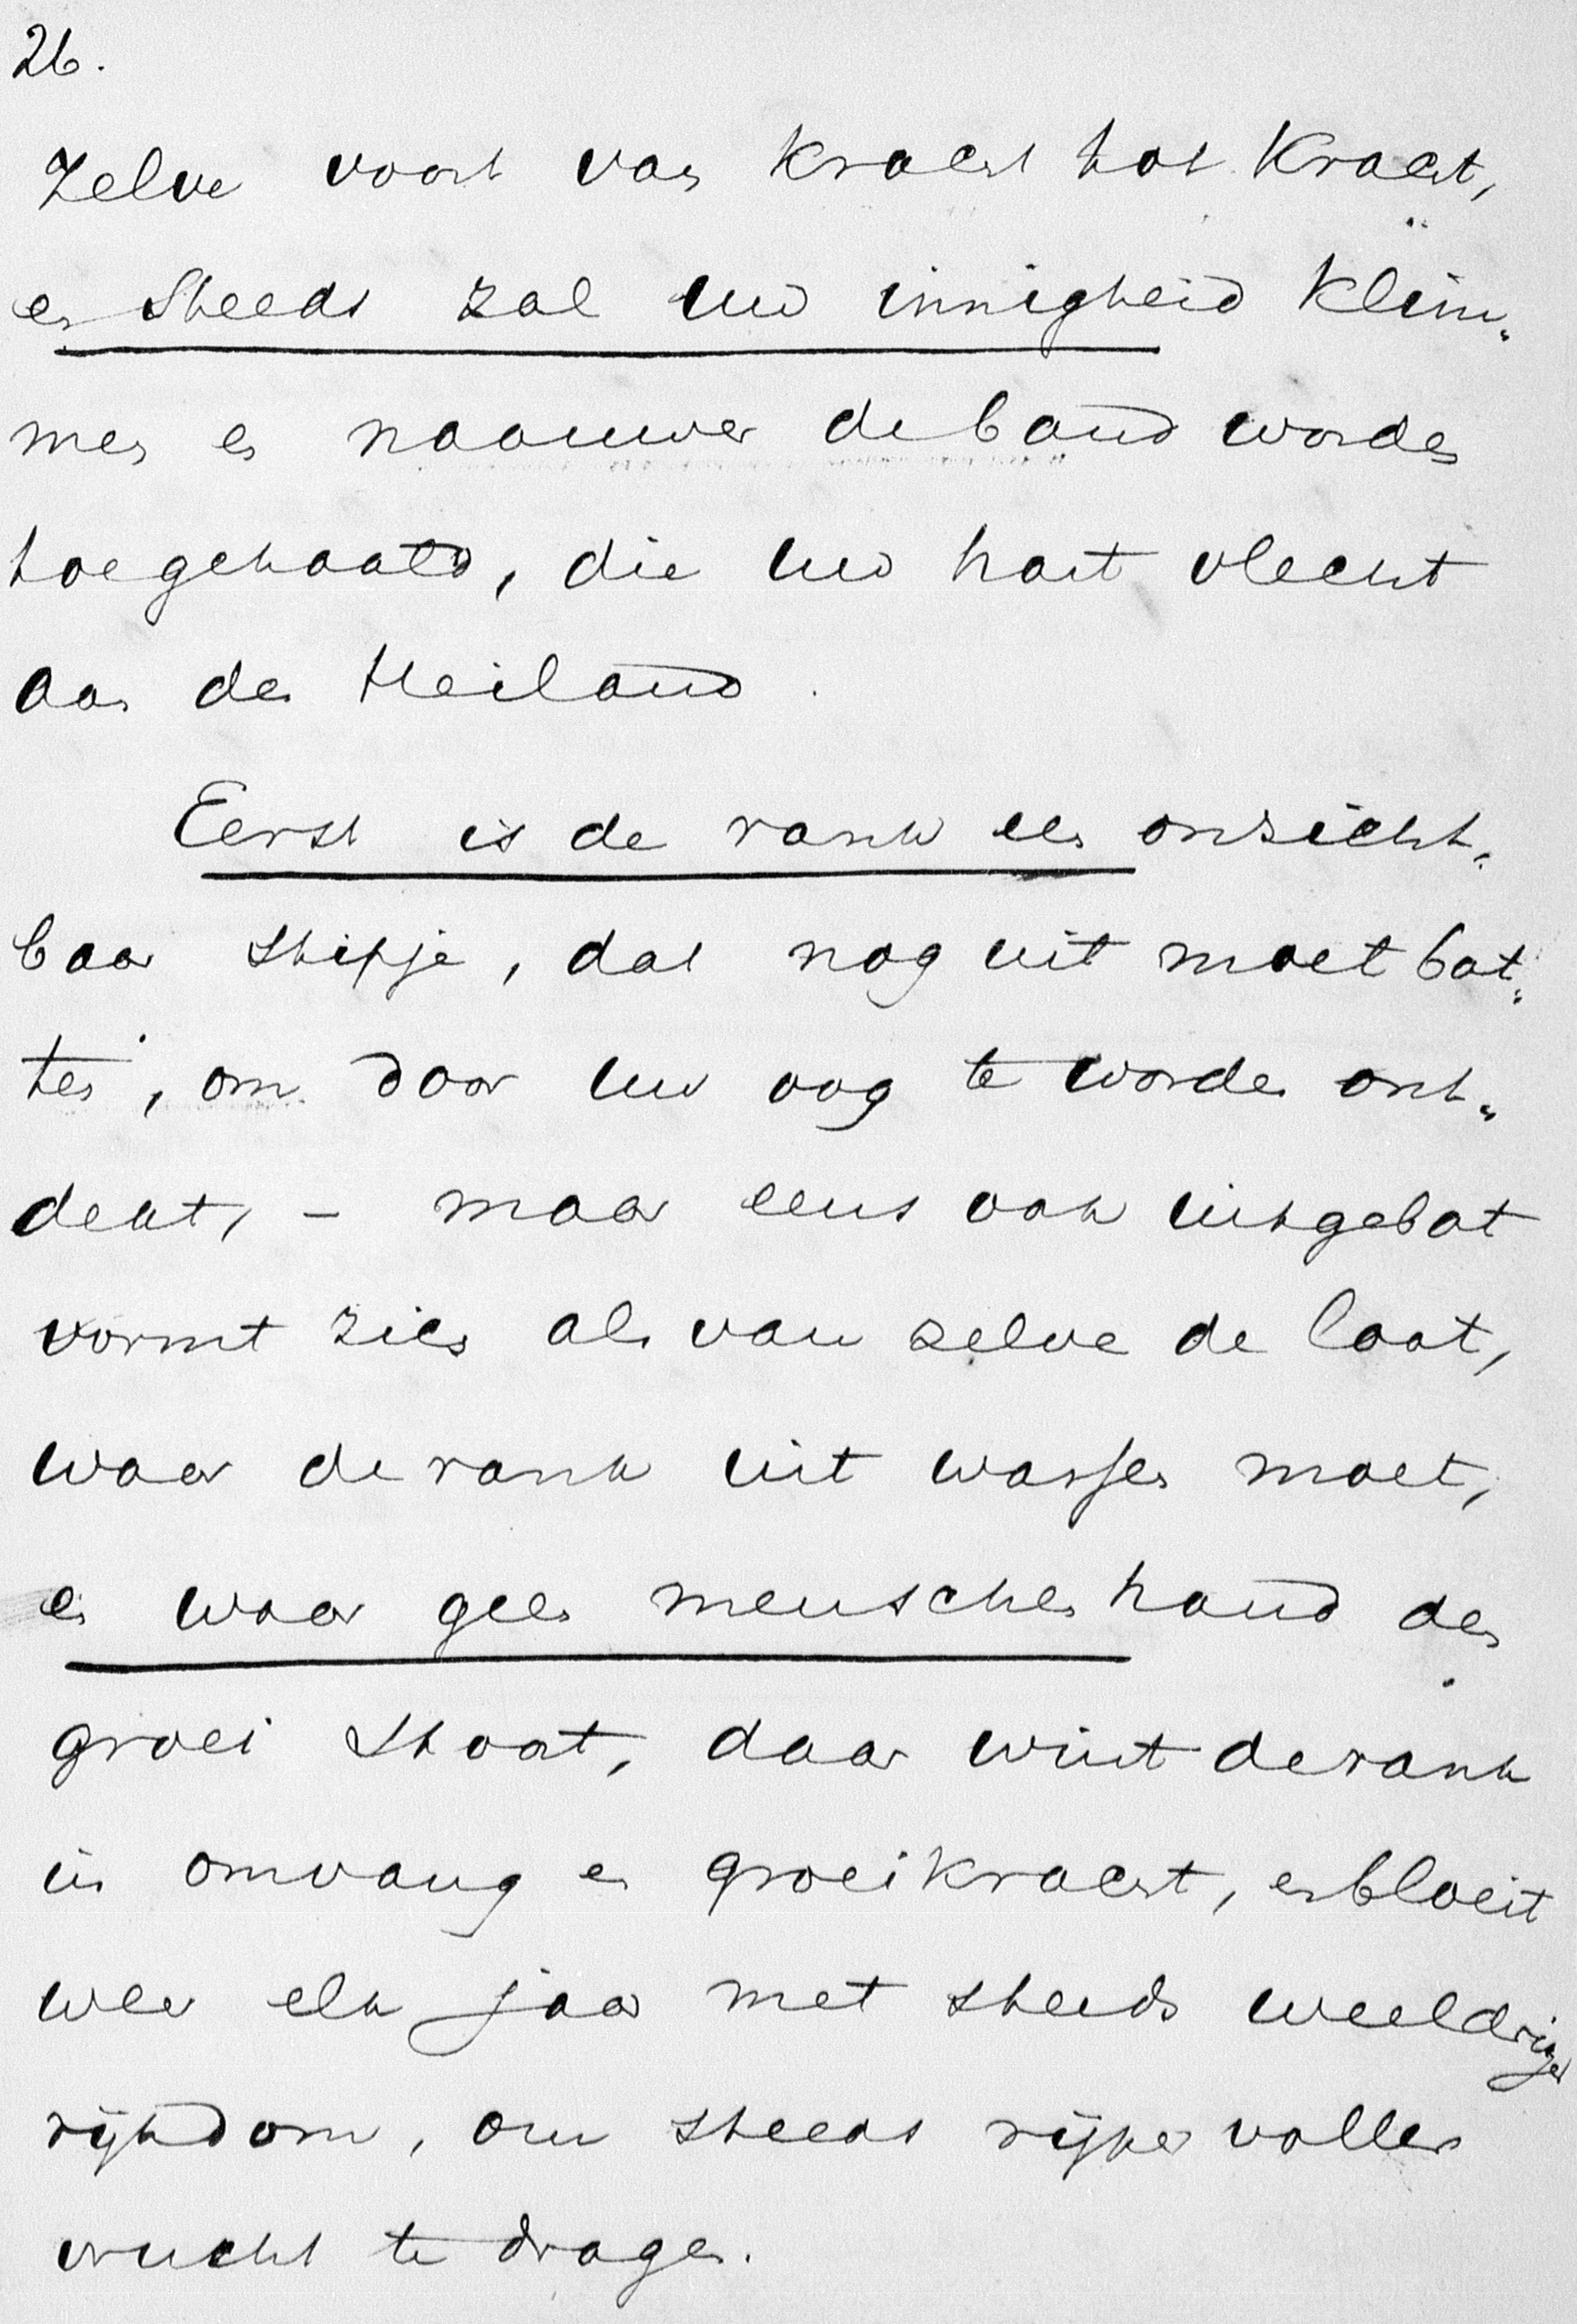 26.
zelve voort van kracht tot kracht,
en steeds zal uw innigheid klim„
men en naauwer de band worden
toegehaald, die uw hart vlecht
aan den Heiland.
Eerst is de rank een onzicht„
baar stipje, dat nog uit moet bot„
ten, om door uw oog te worden ont„
dekt, – maar eens ook uitgebot
vormt zich als van zelve de loot,
waar de rank uit wassen moet,
en waar geen menschenhand den
groei stoort, daar wint de rank
in omvang en groeikracht, en bloeit
weer elk jaar met steeds weeldriger
rijkdom, om steeds rijper voller
vrucht te dragen.